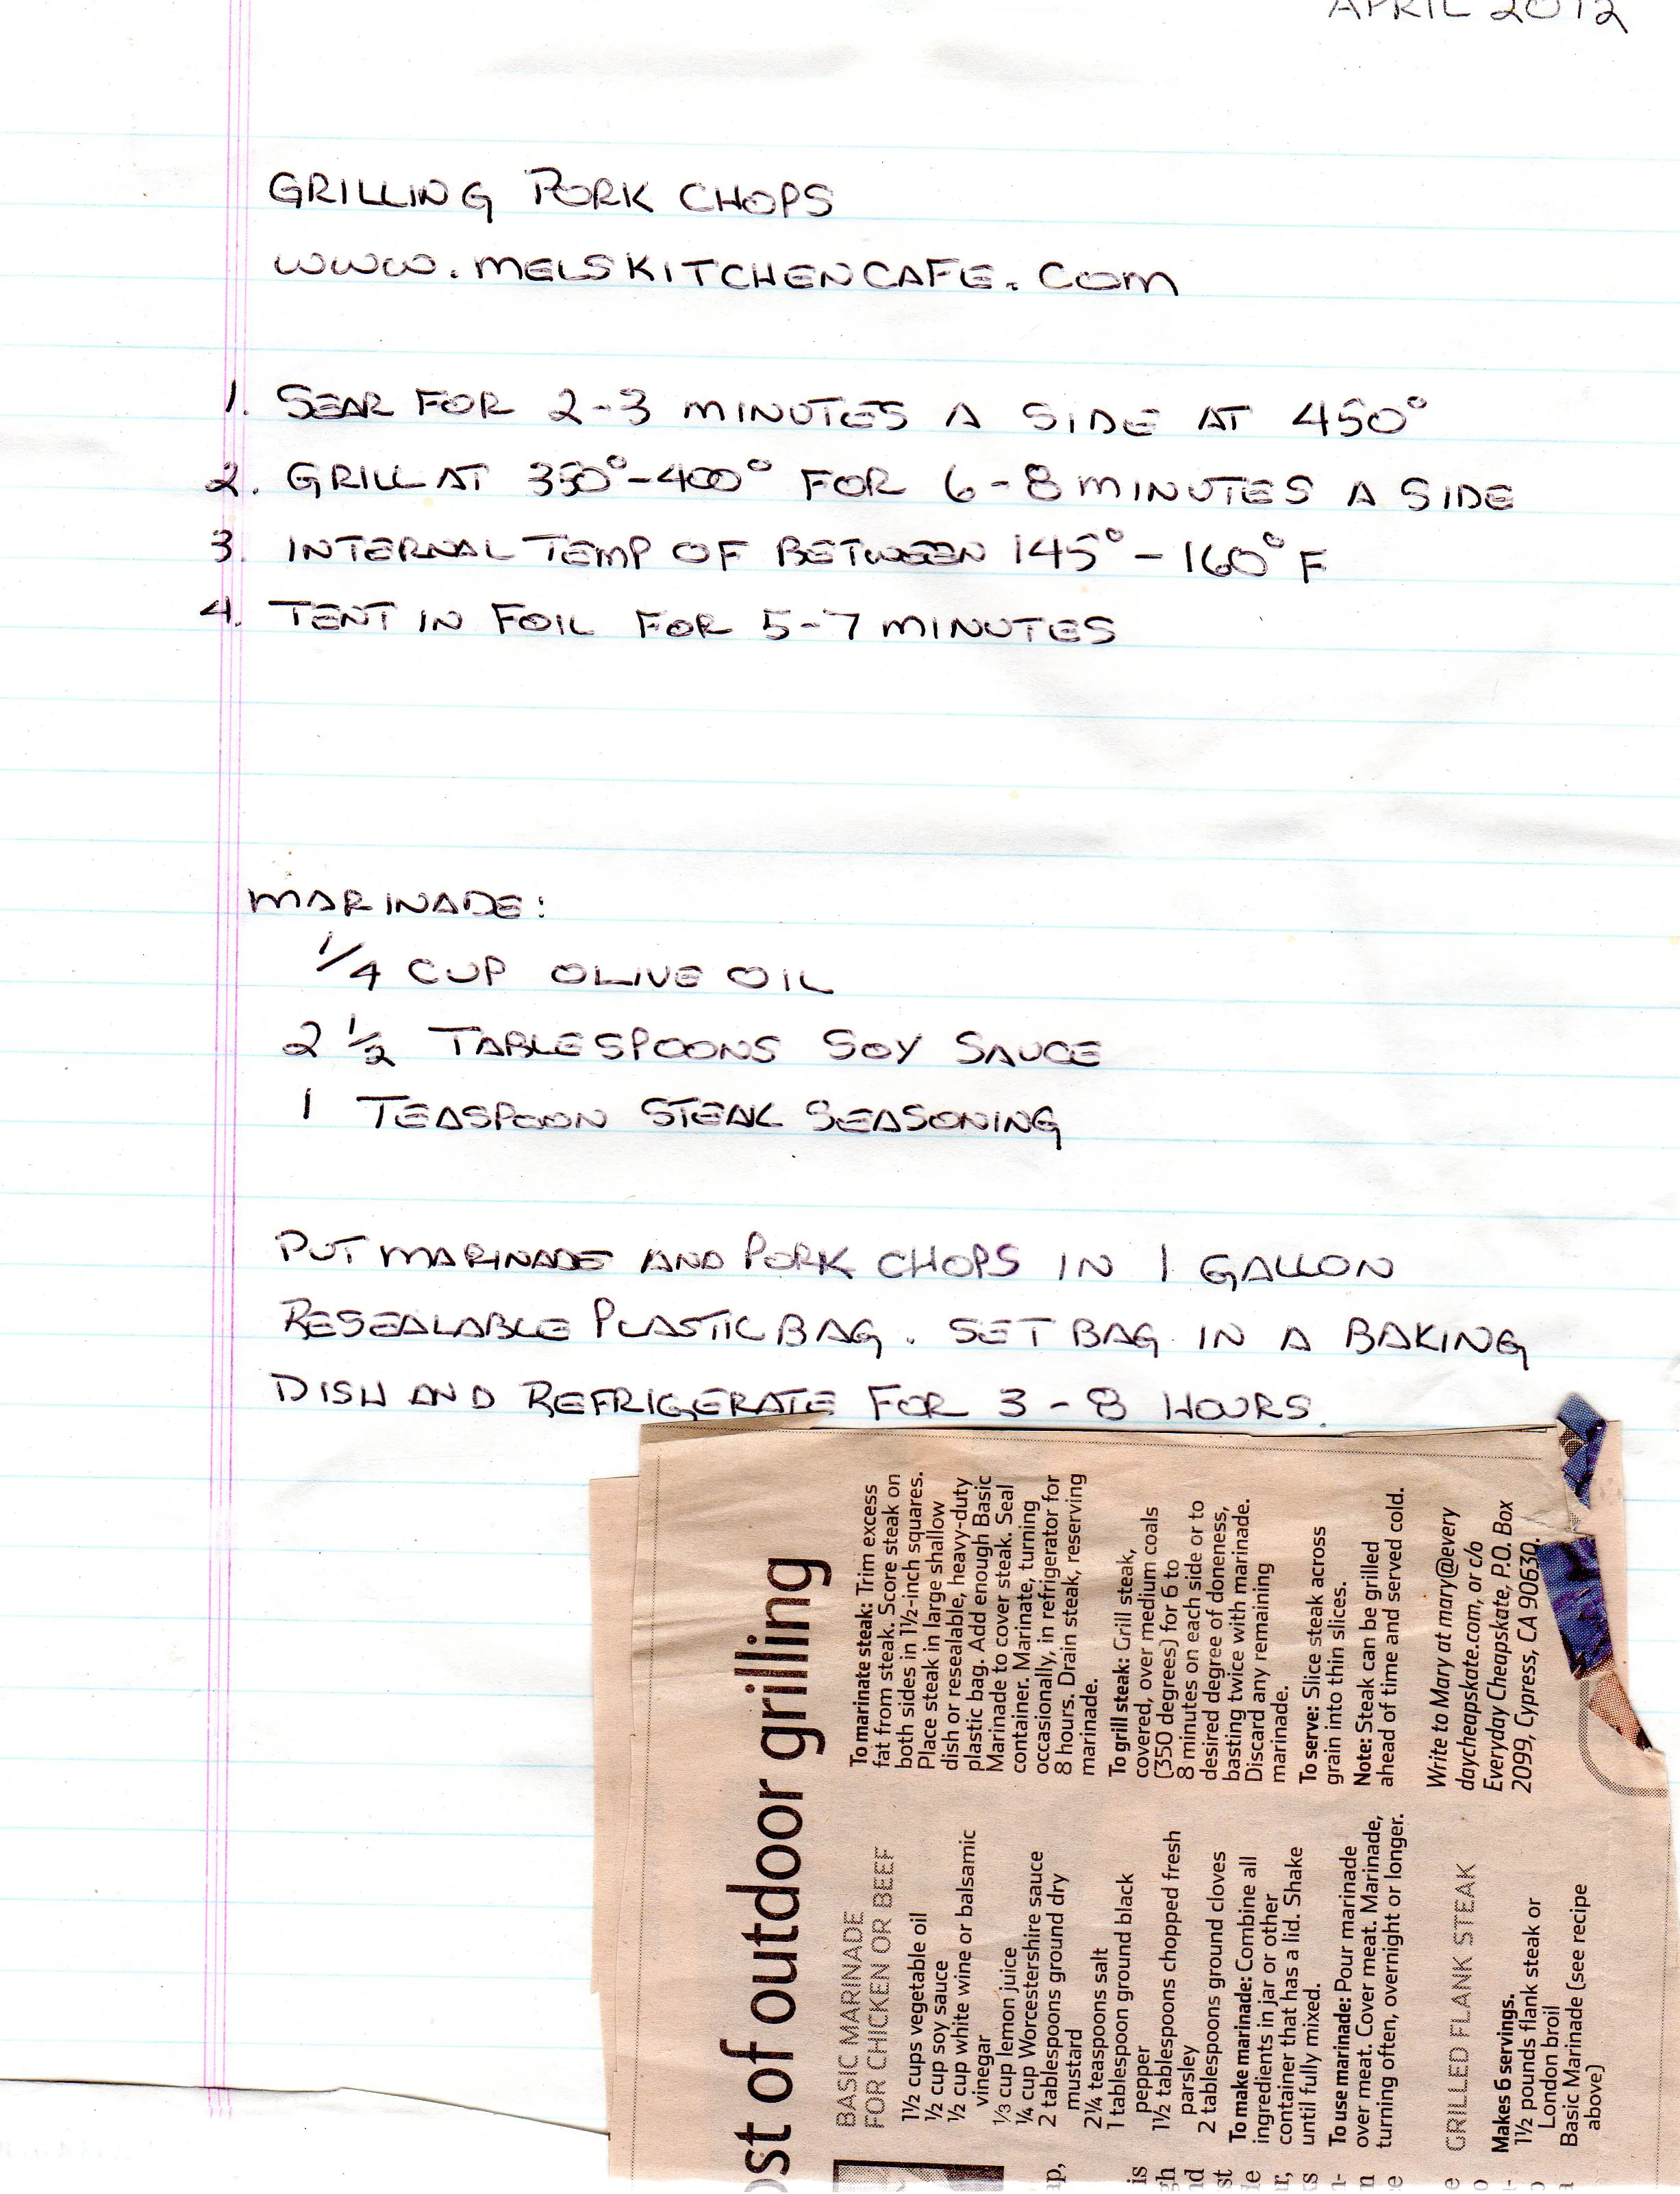 APRIL 2012
GRILLING PORK CHOPS
WWW.MELSKITCHENCAFE.COM
1. SEAR FOR 2-3 MINUTES A SIDE AT 450°
2. GRILL AT 350°-400° FOR 6-8 MINUTES A SIDE
3. INTERNAL TEMP OF BETWEEN 145°-160°F
4. TENT IN FOIL FOR 5-7 MINUTES
MARINADE:
1/4 CUP OLIVE OIL
2 1/2 TABLESPOONS SOY SAUCE
1 TEASPOON STEAK SEASONING
PUT MARINADE AND PORK CHOPS IN 1 GALLON
RESEALABLE PLASTIC BAG. SET BAG IN A BAKING
DISH AND REFRIGERATE FOR 3-8 HOURS.
ost of outdoor grilling
BASIC MARINADE
FOR CHICKEN OR BEEF
1½ cups vegetable oil
½ cup soy sauce
½ cup white wine or balsamic
vinegar
⅓ cup lemon juice
¼ cup Worcestershire sauce
2 tablespoons ground dry
mustard
2¼ teaspoons salt
1 tablespoon ground black
pepper
1½ tablespoons chopped fresh
parsley
2 tablespoons ground cloves
To make marinade: Combine all
ingredients in jar or other
container that has a lid. Shake
until fully mixed.
To use marinade: Pour marinade
over meat. Cover meat. Marinade,
turning often, overnight or longer.
GRILLED FLANK STEAK
Makes 6 servings.
1½ pounds flank steak or
London broil
Basic Marinade (see recipe
above)
To marinate steak: Trim excess
fat from steak. Score steak on
both sides in 1½-inch squares.
Place steak in large shallow
dish or resealable, heavy-duty
plastic bag. Add enough Basic
Marinade to cover steak. Seal
container. Marinate, turning
occasionally, in refrigerator for
8 hours. Drain steak, reserving
marinade.
To grill steak: Grill steak,
covered, over medium coals
(350 degrees) for 6 to
8 minutes on each side or to
desired degree of doneness,
basting twice with marinade.
Discard any remaining
marinade.
To serve: Slice steak across
grain into thin slices.
Note: Steak can be grilled
ahead of time and served cold.
Write to Mary at mary@every
daycheapskate.com, or c/o
Everyday Cheapskate, P.O. Box
2099, Cypress, CA 90630.